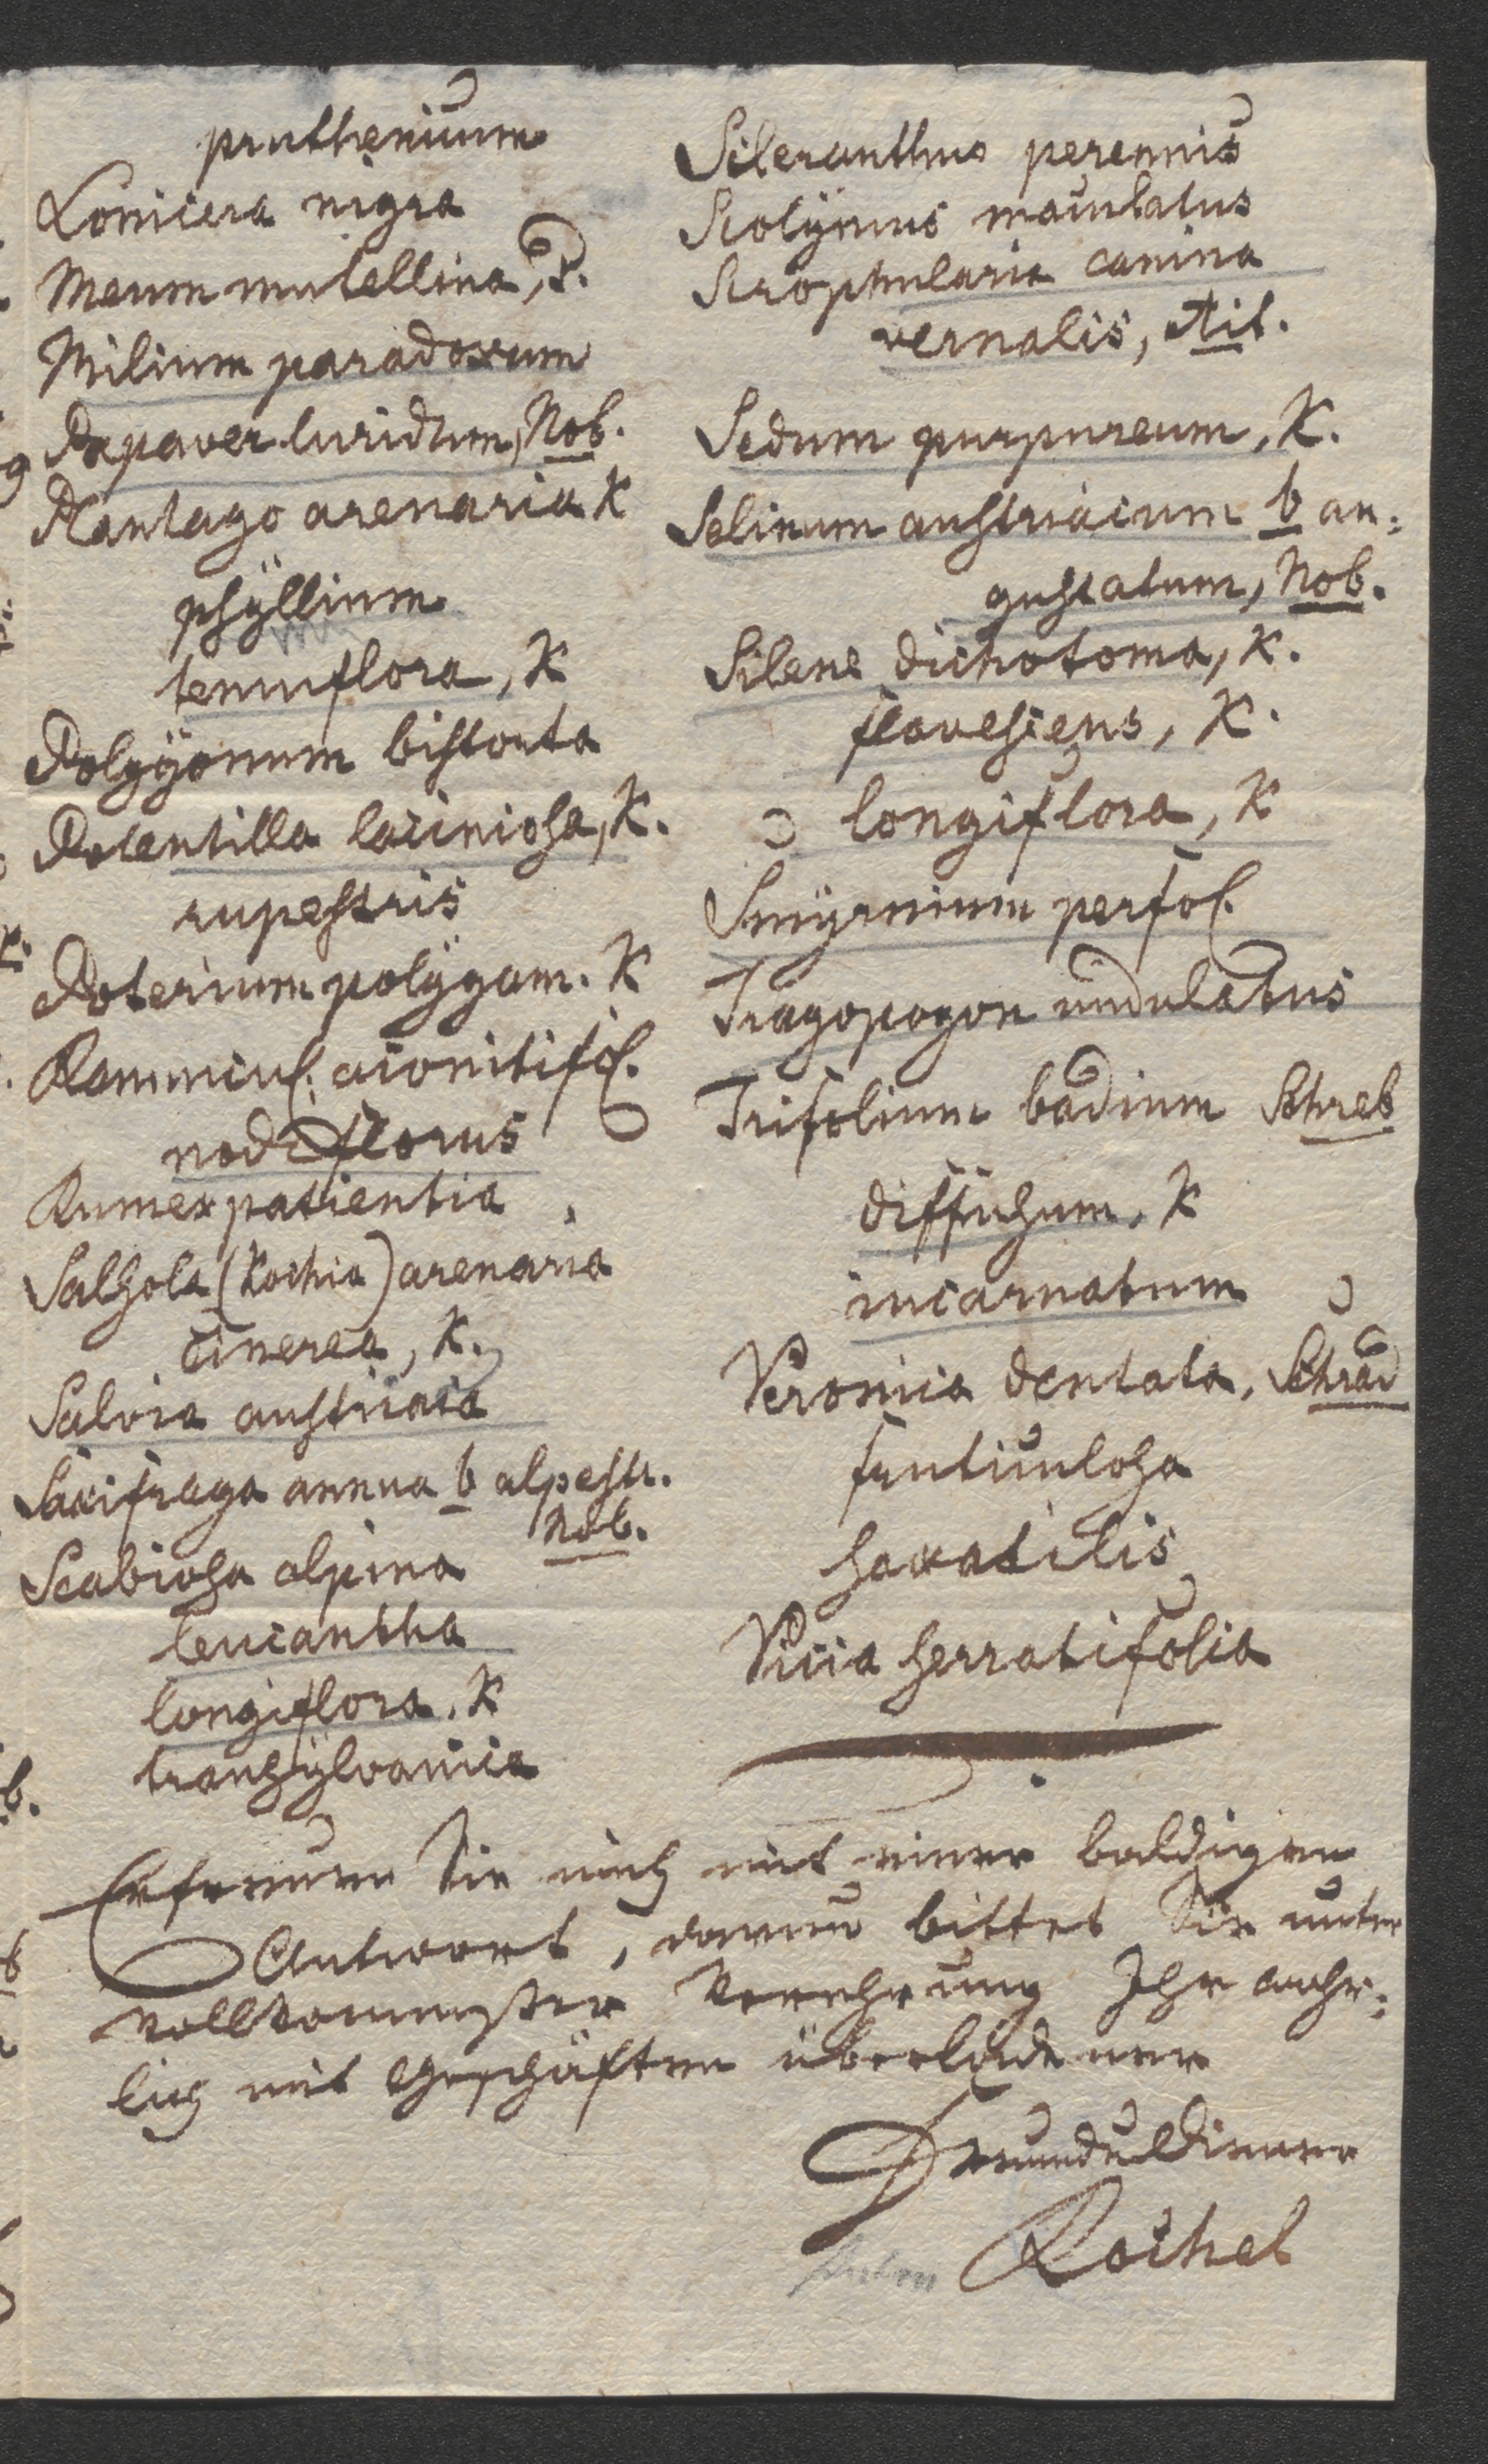 pruthenicum
Lonicera nigra
Meum mutellina, P.
Milium paradoxum
Papaver luridum, Nob.
Plantago arenaria K
psÿllium
tenuiflora, K
Polygonum bistorta
Potentilla laciniosa, K.
rupestris
Poterium polÿgam. K
Rannuncul. aconitifol.
nodiflorus
Rumex patientia
Salsola (Kochia) arenaria
cinerea, K.
Salvia austriaca
Saxifraga annua b alpestr.
Nob.
Scabiosa alpina
leucantha
longiflora. K
transÿlvanica
Scleranthus perennis
Scolÿmus maculatus
Scrophularia canina
vernalis, Ait.
Sedum purpureum, K.
Selinum austriacum b an:
gustatum, Nob.
Silene dichotoma, K.
flavescens, K.
longiflora, K
Smÿrnium perfol.
Tragopogon undulatus
Trifolium badium Schreb
diffusum, K
incarnatum
Veronica dentata, Schrad
fruticulosa
saxatilis
Vicia serratifolia
Erfreuen Sie mich mit einer baldigen
Antwort, darum bittet Sie unter
vollkommester Verehrung Ihr wahr:
lich mit Geschäften überladener
Freund u Diener
Anton Rochel